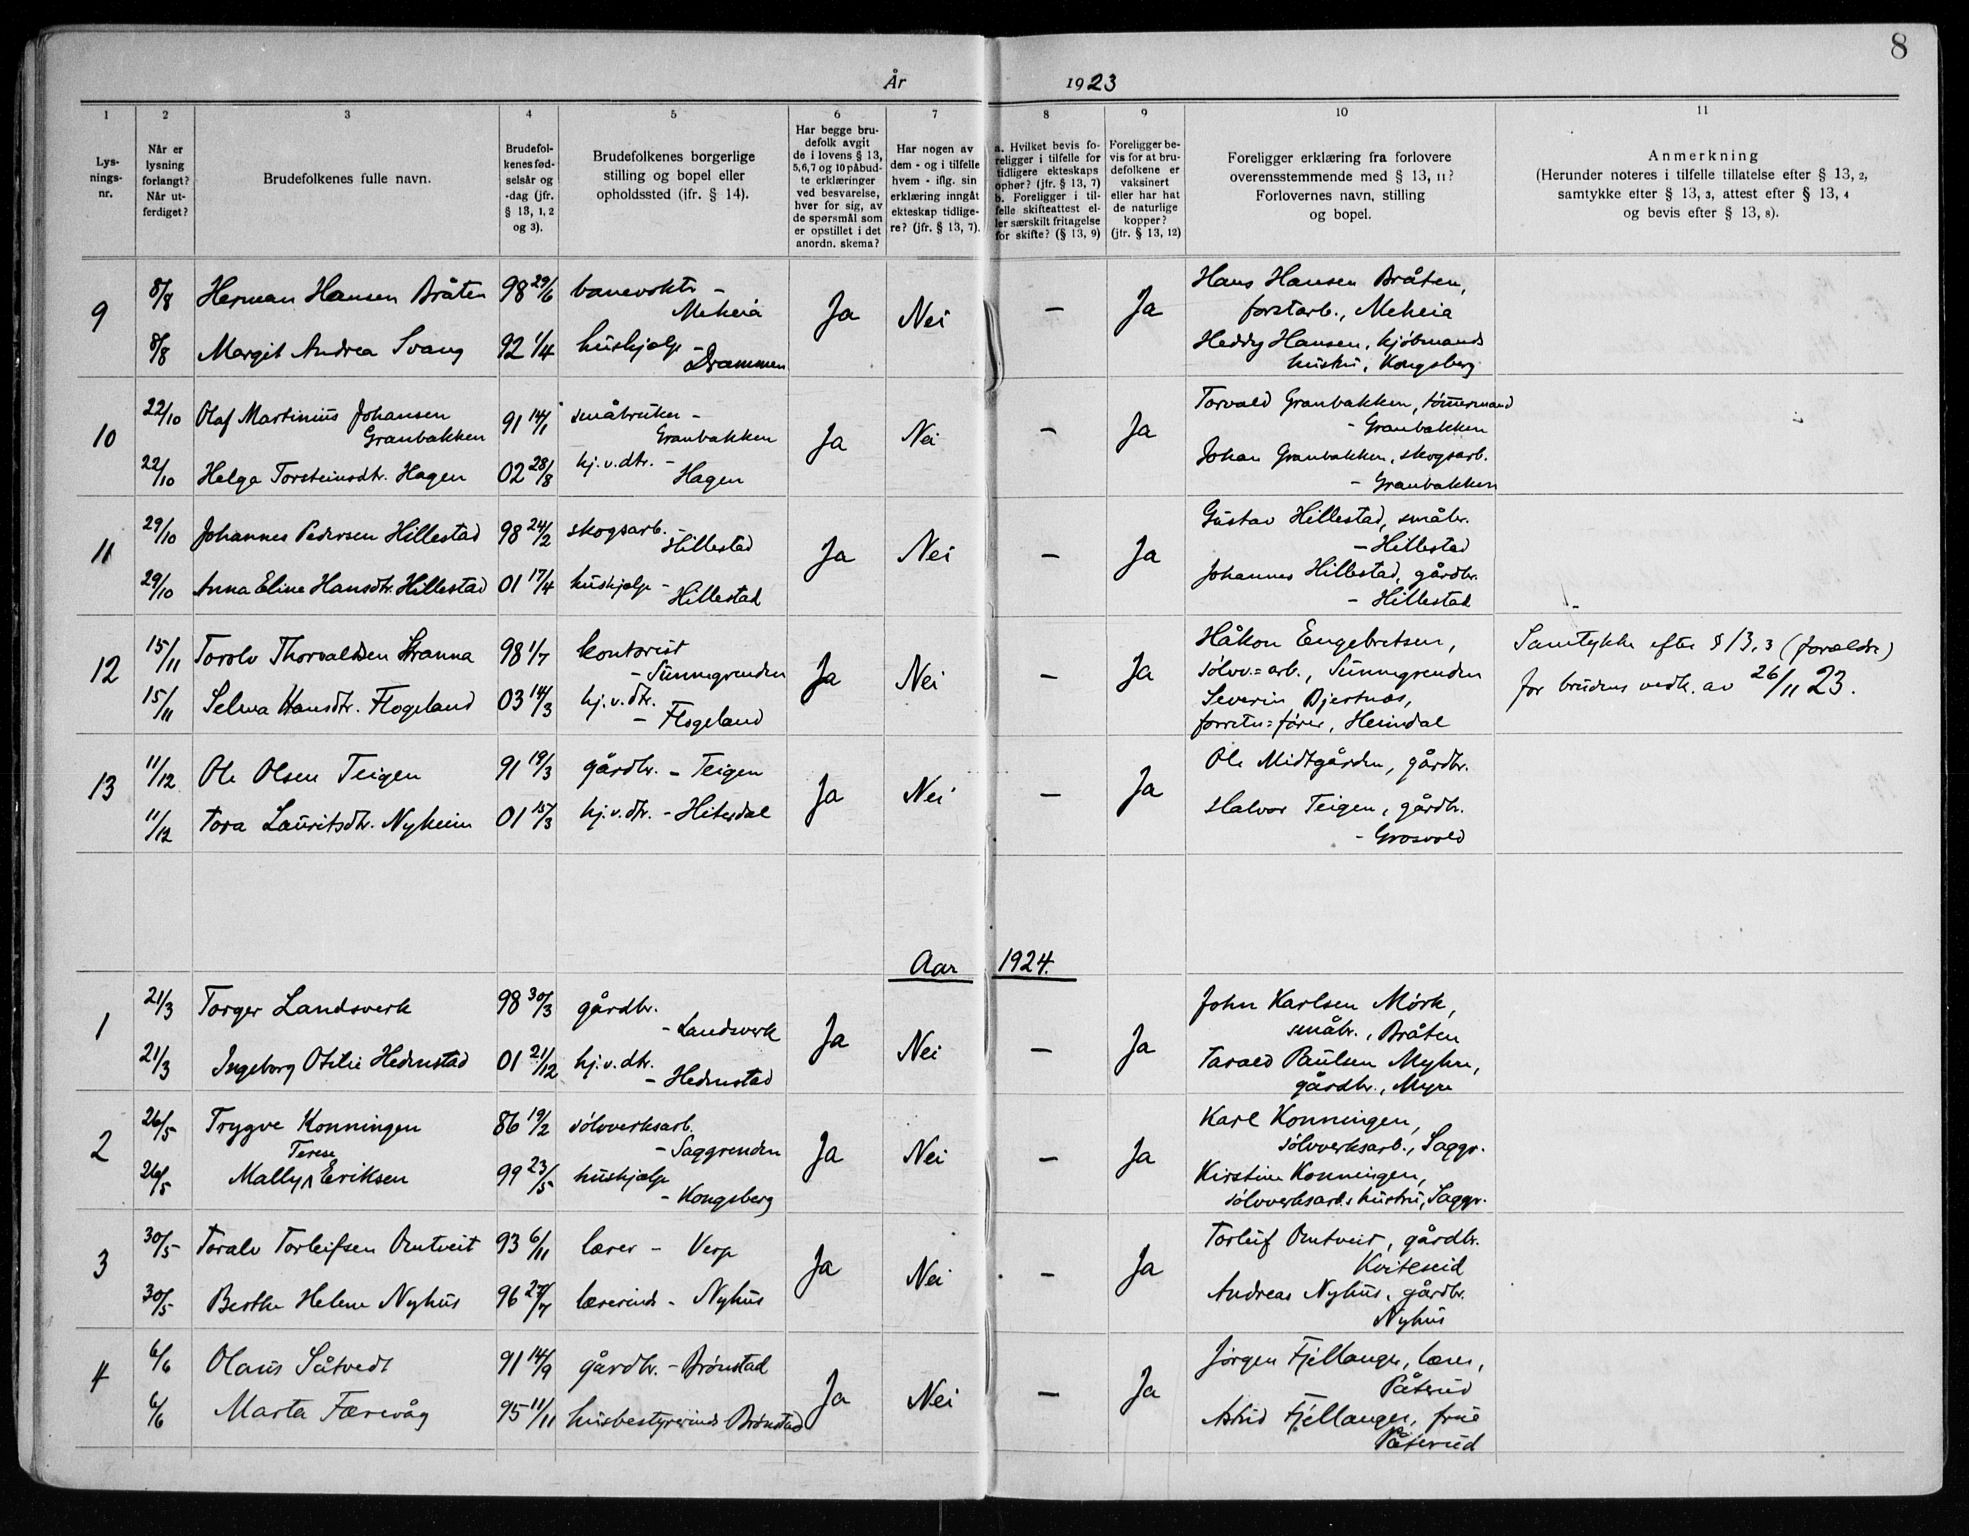 8
År 1923
1 2 3 4 5 6 7 8 9 10 11
Lys-
nings-
nr.
Når er
lysning
forlangt?
Når ut-
ferdiget?
Brudefolkenes fulle navn.
Brudefol-
kenes fød-
selsår og
-dag (jfr.
§ 13, 1, 2
og 3).
Brudefolkenes borgerlige
stilling og bopel eller
opholdssted (jfr. § 14).
Har begge bru-
defolk avgit
de i lovens § 13,
5,6,7 og 10 påbud-
te erklæringer
ved besvarelse,
hver for sig, av
de spørsmål som
er opstillet i det
anordn. skema?
Har nogen av
dem - og i tilfelle
hvem - iflg. sin
erklæring inngåt
ekteskap tidlige-
re? (jfr. § 13, 7).
a. Hvilket bevis fo-
religger i tilfelle for
tidligere ekteskaps
ophør? (jfr. § 13, 7)
b. Foreligger i til-
felle skifteattest el-
ler særskilt fritagelse
for skifte? (§ 13, 9)
Foreligger be-
vis for at bru-
defolkene er
vaksinert
eller har hat
de naturlige
kopper?
(jfr. § 13, 12)
Foreligger erklæring fra forlovere
overensstemmende med § 13, 11?
Forlovernes navn, stilling
og bopel.
Anmerkning
(Herunder noteres i tilfelle tillatelse efter § 13, 2,
samtykke etter § 13, 3, attest efter § 13, 4
og bevis efter § 13, 8).
9
8/8 Herman Hansen Bråten 98 29/6 banevokter -
Meheia
8/8 Margit Andrea Svang 92 1/4 hushjelp -
Drammen
Ja Nei — Ja
Hans Hansen Bråten,
forstarb., Meheia
Heddy Hansen, kjøbmands
hustru, Kongsberg
10
22/10 Olaf Martinius Johansen
Granbakken 91 14/1 småbruker -
Granbakken
22/10 Helga Torsteinsdtr. Hagen 02 28/8 hj.v.dtr. -
Hagen
Ja Nei — Ja
Torvald Granbakken, tømmermand
- Granbakken
Johan Granbakken, skogsarb.
- Granbakken
11
29/10 Johannes Pedersen Hillestad 98 24/2 skogsarb.
- Hillestad
29/10 Anna Eline Hansdtr. Hillestad 01 17/4 hushjelp -
Hillestad
Ja Nei — Ja
Gustav Hillestad, småbr.
- Hillestad
Johannes Hillestad, gårdbr.
- Hillestad
12
15/11 Torolv Thorvaldsen Stranna 98 1/7 kontorist
- Sünngrenden
15/11 Selma Hansdtr. Flogeland 03 14/3 hj.v.dtr.
- Flogeland
Ja Nei — Ja
Håkon Engebretsen,
sølvv.=arb., Sünngrenden
Severin Bjertnæs,
forretn=fører, Heimdal
Samtykke efter § 13,3 (forældre)
for brudens vedk. av 26/11 23.
13
11/12 Ole Olsen Teigen 91 19/3 gårdbr. - Teigen
11/12 Tora Lauritsdtr. Nyheim 01 15/3 hj.v.dtr. - Hiterdal
Ja Nei — Ja
Ole Midtgården, gårdbr.
Halvor Teigen, gårdbr.
- Grosvold
Aar 1924.
1
21/3 Torger Landsverk 98 30/3 gårdbr.
- Landsverk
21/3 Ingeborg Otilie Hedenstad 01 21/12 hj.v.dtr.
- Hedenstad
Ja Nei — Ja
John Karlsen Mørk,
småbr., Bråten
Tarald Paulsen Myhre,
gårdbr., Myre
2
26/5 Trygve Konningen 86 19/2 sølvverksarb.
- Saggrenden
Terese
26/5 Mally Eriksen 99 23/5 hushjelp
- Kongsberg
Ja Nei — Ja
Karl Konningen,
sølvverksarb., Saggr.
Kirstine Konningen,
sølvverksarb.s hustru, Saggr.
3
30/5 Toralv Torleifsen Omtveit 93 6/11 lærer - Verp
30/5 Berthe Helene Nyhus 96 27/7 lærerinde - Nyhus
Ja Nei — Ja
Torleif Omtveit, gårdbr.
Kviteseid
Andreas Nyhus, gårdbr.
Nyhus
4
6/6 Olaus Såtvedt 91 14/9 gårdbr. - Brønstad
6/6 Marta Færevåg 95 11/11 husbestyrerinde Brønstad
Ja Nei — Ja
Jørgen Fjellanger, lærer,
Påterud
Astrid Fjellanger, frue
Påterud